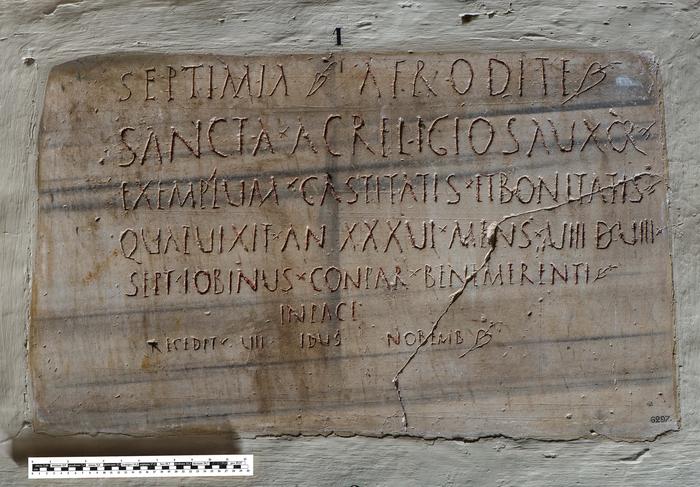 1
SEPTIMIA AFRODITE
SANCTA AC RELIGIOSA UXOR
EXEMPLUM CASTITATIS ET BONITATIS
QUAE UIXIT AN XXXVI MENS VIIII D VIIII
SEPT IOBINUS CONPAR BENEMERENTI
IN PACE
RECEDIT VIII IDUS NOBEMB
6297